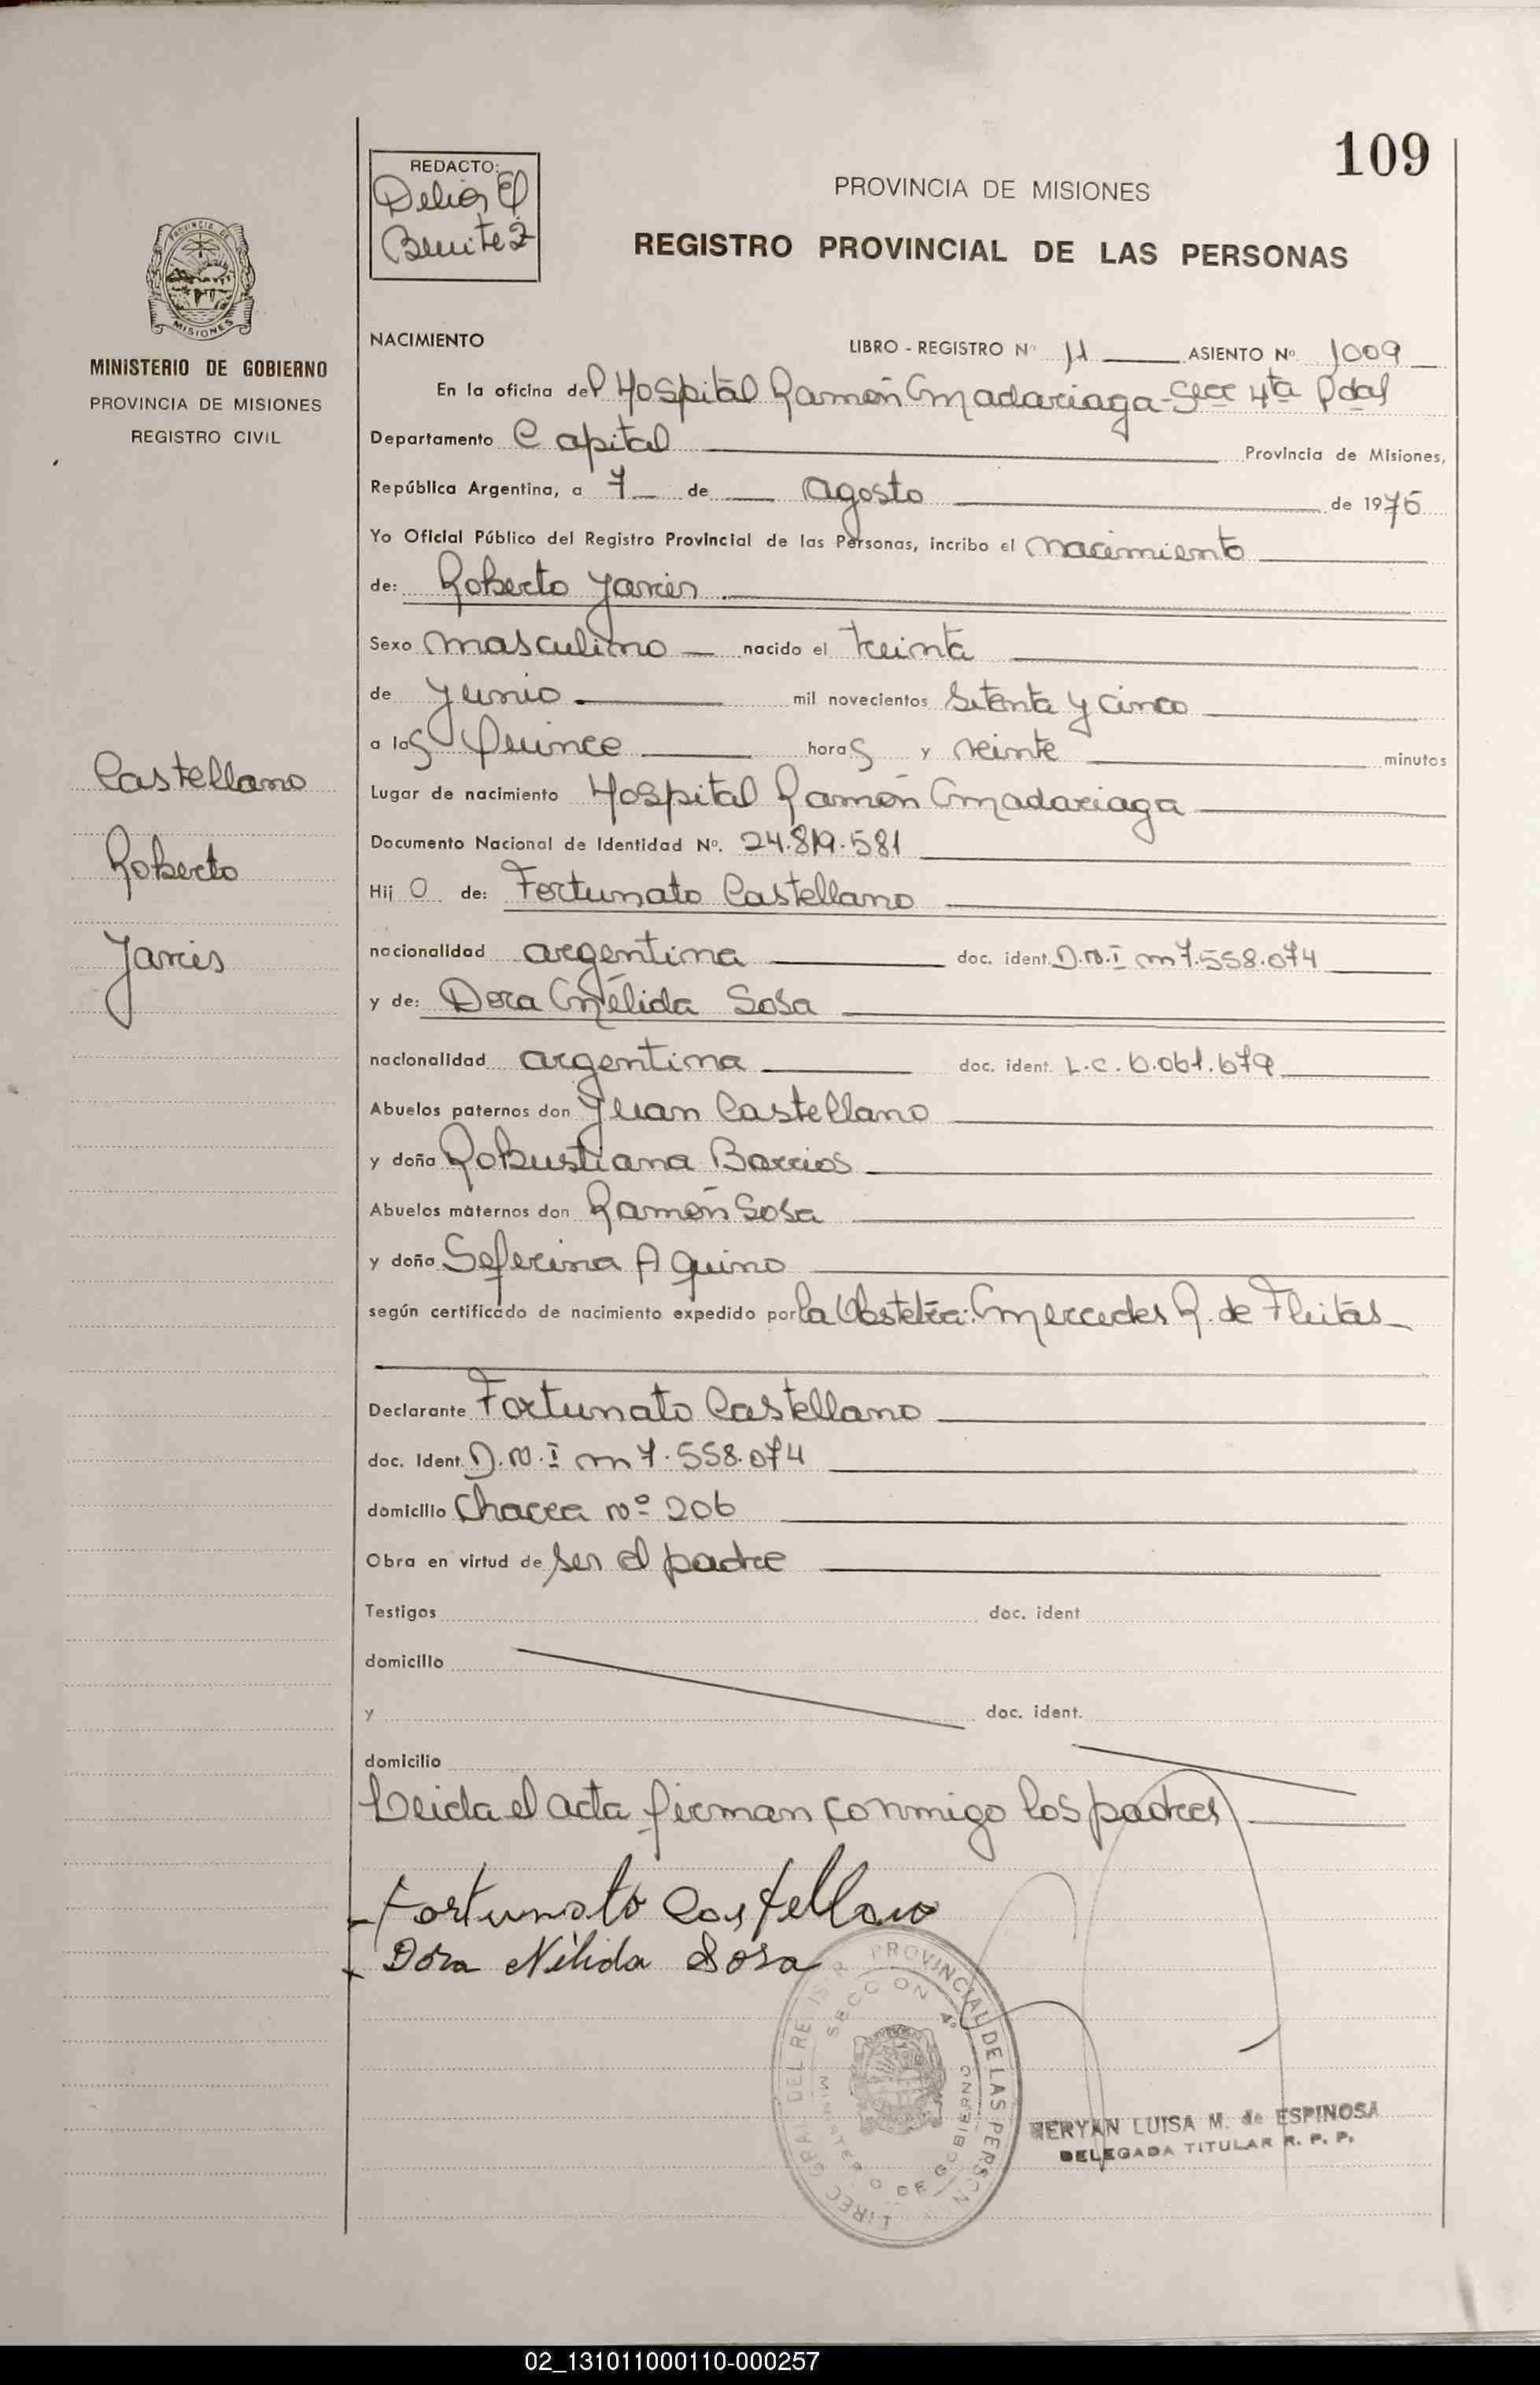 109
REDACTO:
Delia E
Benitez
PROVINCIA DE MISIONES
REGISTRO PROVINCIAL DE LAS PERSONAS
PROVINCIA DE
MISIONES
MINISTERIO DE GOBIERNO
PROVINCIA DE MISIONES
REGISTRO CIVIL
NACIMIENTO
LIBRO - REGISTRO Nº 11 ASIENTO Nº 1009
En la oficina del Hospital Ramón Madariaga - Secc 4ta Pdas
Departamento Capital Provincia de Misiones,
República Argentina, a 7 de agosto de 1975
Yo Oficial Público del Registro Provincial de las Personas, incribo el nacimiento
de: Roberto Javier
Sexo masculino nacido el treinta
de junio mil novecientos setenta y cinco
a las quince horas y veinte minutos
Castellano
Lugar de nacimiento Hospital Ramón Madariaga
Documento Nacional de Identidad Nº. 24.819.581
Roberto
Hijo de: Fortunato Castellano
Javier
nacionalidad argentina doc. ident. D.N.I m 7.558.074
y de: Dora Nélida Sosa
nacionalidad argentina doc. ident. L.C. 6.061.679
Abuelos paternos don Juan Castellano
y doña Robustiana Barrios
Abuelos maternos don Ramón Sosa
y doña Seferina Aquino
según certificado de nacimiento expedido por la Obstetra: Mercedes R. de Fleitas
Declarante Fortunato Castellano
doc. Ident. D.N.I m 7.558.074
domicilio Chacra nº 206
Obra en virtud de ser el padre
Testigos doc. ident
domicilio
y doc. ident.
domicilio
Leida el acta firman conmigo los padres
Fortunato Castellano
Dora Nélida Sosa
PROVINCIAL DE LAS PERSON
SECCION 4º
MINISTERIO DE GOBIERNO
NERYAN LUISA M. de ESPINOSA
DELEGADA TITULAR R. P. P.
02_131011000110-000257